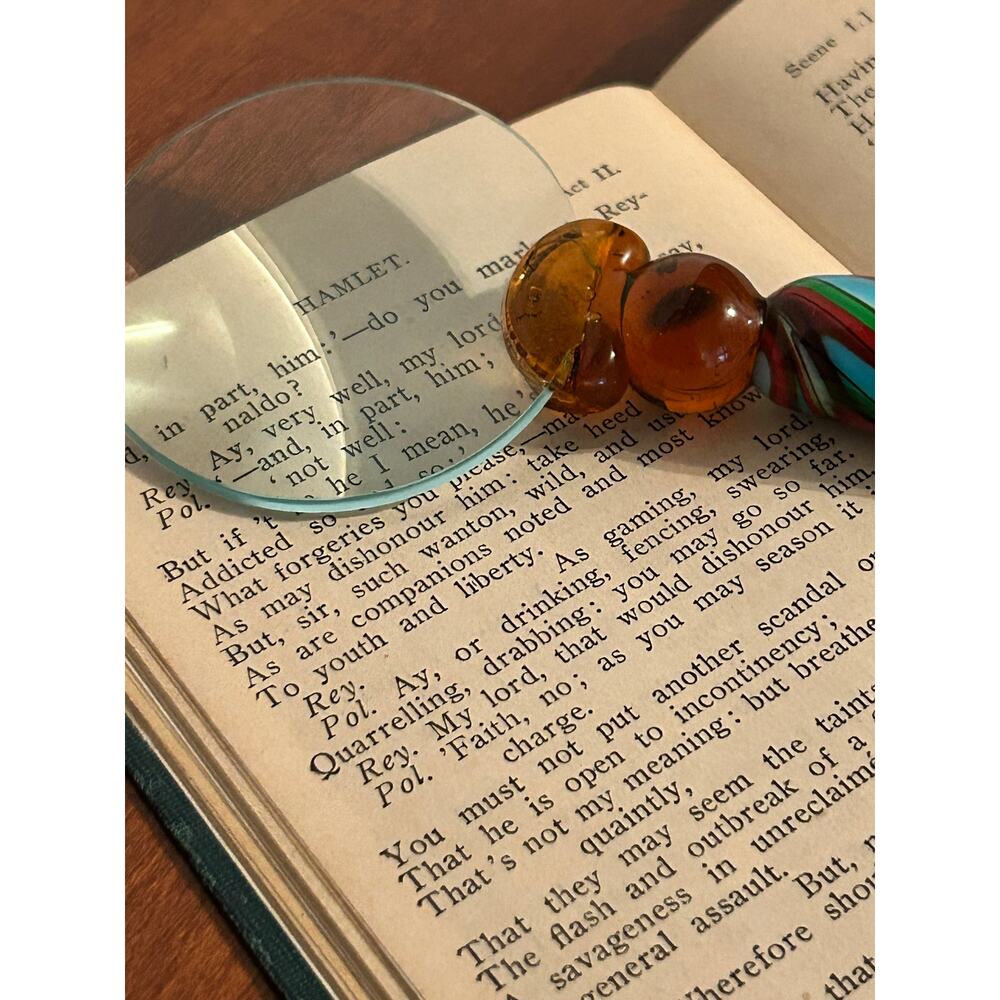 Act II.
Scene 1.]
HAMLET.
in part, him:'—do you mark
Rey-
naldo?
Rey. Ay, very well, my lord
Pol. '—and, in part, him;
'not well:
But if 't he I mean, he
Addicted so so;'
What forgeries you please,
As may dishonour him: take heed
But, sir, such wanton, wild, and
As are companions noted and most know
To youth and liberty.
Rey. As gaming, my lord.
Pol. Ay, or drinking, fencing, swearing,
Quarrelling, drabbing: you may go so far.
Rey. My lord, that would dishonour him.
Pol. 'Faith, no; as you may season it
charge.
You must not put another scandal
That he is open to incontinency;
That's not my meaning: but breathe
quaintly,
That they may seem the taints
The flash and outbreak of a
A savageness in unreclaimé
general assault.
But,
Wherefore shou
that
Havin
The